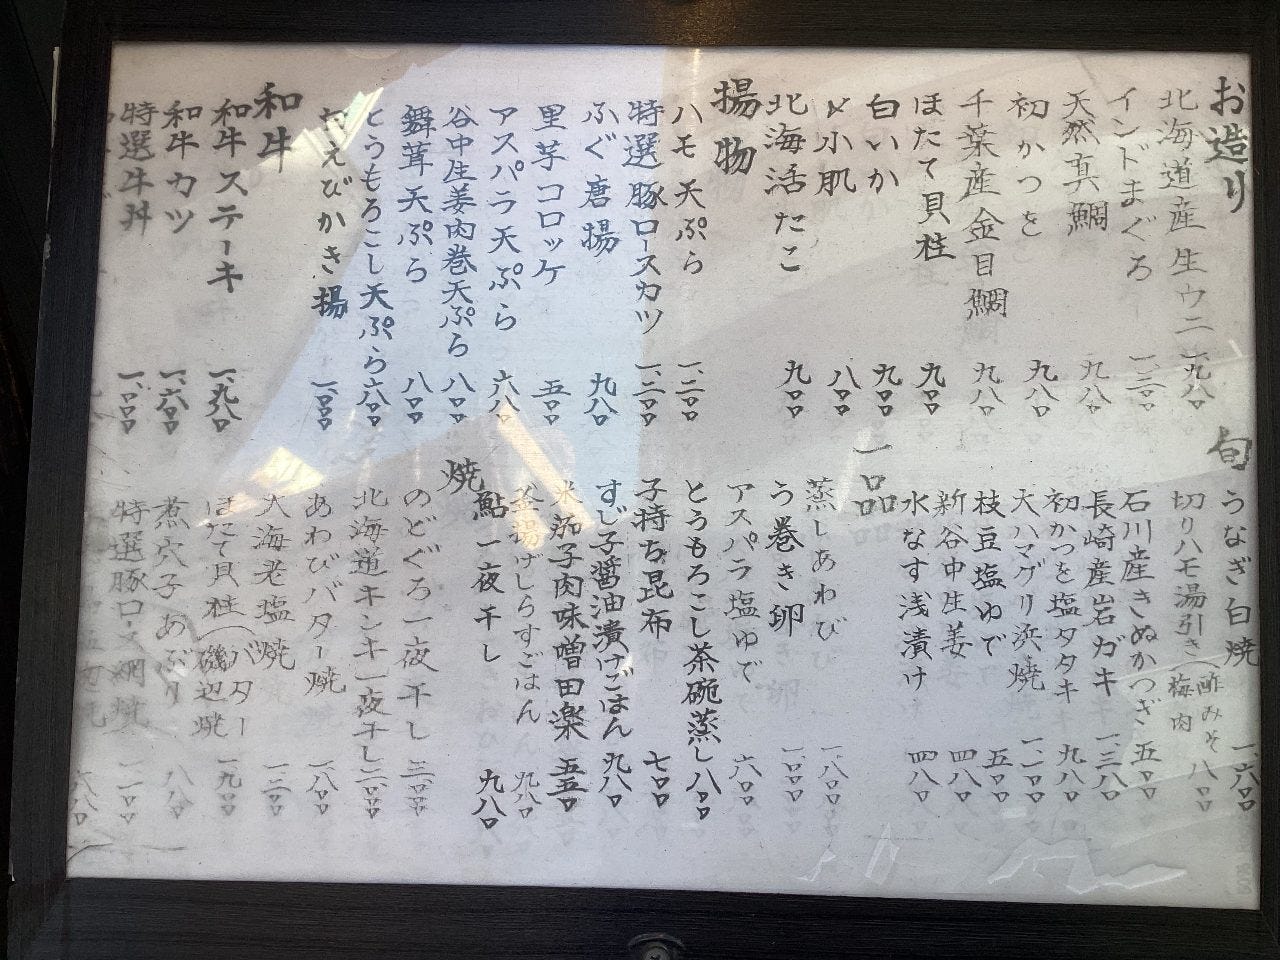 お造り
北海道産生ウニ 一、九八〇
インドまぐろ 一、二〇〇
天然真鯛 九八〇
初かつを 九八〇
千葉産金目鯛 九八〇
ほたて貝柱 九〇〇
白いか 九〇〇
〆小肌 八〇〇
北海活たこ 九〇〇
揚物
ハモ天ぷら 一、二〇〇
特選豚ロースカツ 一、二〇〇
ふぐ唐揚 九八〇
里芋コロッケ 五〇〇
アスパラ天ぷら 六八〇
谷中生姜肉巻天ぷら 八〇〇
舞茸天ぷら 八〇〇
とうもろこし天ぷら 六八〇
えびかき揚 一、〇〇〇
和牛
和牛ステーキ 一、九八〇
和牛カツ 一、六八〇
特選牛丼 一、〇〇〇
旬
うなぎ白焼 一、六〇〇
切りハモ湯引き(酢みそ 梅肉 八〇〇
石川産きぬかつぎ 五〇〇
長崎産岩ガキ 一、三八〇
初かつを塩タタキ 九八〇
大ハマグリ浜焼 一、二〇〇
枝豆塩ゆで 五〇〇
新谷中生姜 四八〇
水なす浅漬け 四八〇
一品
蒸しあわび 一、八〇〇
う巻き卵 一、〇〇〇
アスパラ塩ゆで 六〇〇
とうもろこし茶碗蒸し 八〇〇
子持ち昆布 七〇〇
すじ子醤油漬けごはん 九八〇
米茄子肉味噌田楽 五五〇
釜揚げしらすごはん 九八〇
焼
鮎一夜干し 九八〇
のどぐろ一夜干し 三、〇〇〇
北海道キンキ一夜干し 三、〇〇〇
あわびバター焼 一、八〇〇
大海老塩焼 一、三〇〇
ほたて貝柱(バター 磯辺焼 一、九〇〇
煮穴子あぶり 八八〇
特選豚ロース網焼 一、二〇〇
六八〇